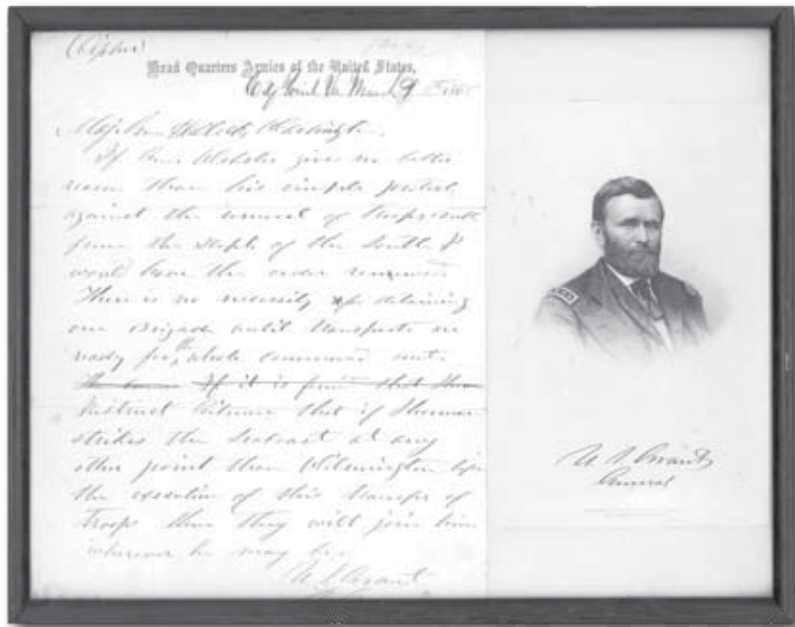 (Cipher)
Head Quarters Armies of the United States,
City Point Va. March 9 1865
Maj. Gen. Halleck, Washington,
If Gen. Webster gives no better
reason than his simple protest
against the removal of troops
from the of the South I
would have the order renewed.
There is no necessity for detaining
one Brigade until transports are
ready for the whole command
If it is found that
Instruct Gilmore that if Sherman
strikes the Seacoast at any
other point than Wilmington before
the execution of this transfer of
troops then they will join him
wherever he may be.
U. S. Grant
U. S. Grant
General